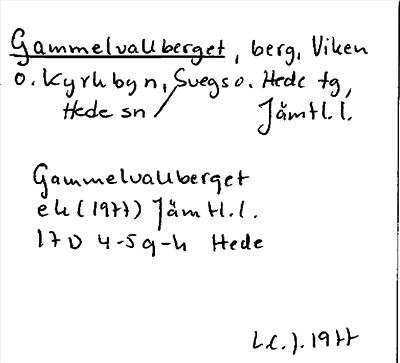 Gammelvallberget, berg, Viken
o. Kyrkbyn, Svegs o. Hede tg,
Hede sn / Jämtl. l.
Gammelvallberget
ek (1977) Jämtl. l.
17D 4-5g-h Hede
L.C.J. 1977